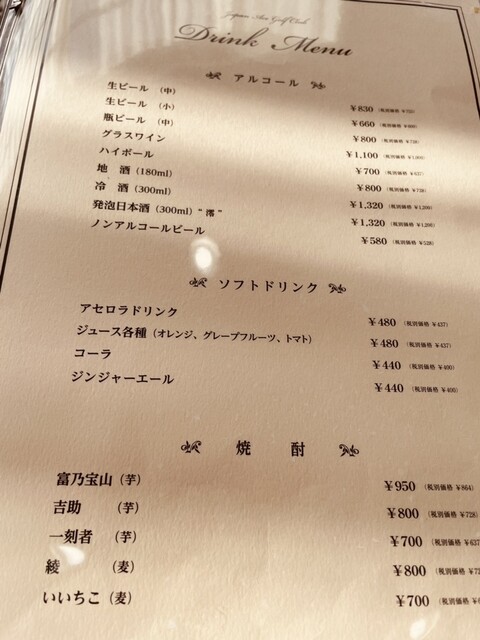 Japan Golf Club
Drink Menu
アルコール
生ビール (中) ¥830 (税別価格 ¥755)
生ビール (小) ¥660 (税別価格 ¥600)
瓶ビール (中) ¥800 (税別価格 ¥728)
グラスワイン ¥1,100 (税別価格 ¥1,000)
ハイボール ¥700 (税別価格 ¥637)
地 酒 (180ml) ¥800 (税別価格 ¥728)
冷 酒 (300ml) ¥1,320 (税別価格 ¥1,200)
発泡日本酒 (300ml) “ 澪 ” ¥1,320 (税別価格 ¥1,200)
ノンアルコールビール ¥580 (税別価格 ¥528)
ソフトドリンク
アセロラドリンク ¥480 (税別価格 ¥437)
ジュース各種 (オレンジ、グレープフルーツ、トマト) ¥480 (税別価格 ¥437)
コーラ ¥440 (税別価格 ¥400)
ジンジャーエール ¥440 (税別価格 ¥400)
焼 酎
富乃宝山 (芋) ¥950 (税別価格 ¥864)
吉助 (芋) ¥800 (税別価格 ¥728)
一刻者 (芋) ¥700 (税別価格 ¥637
綾 (麦) ¥800 (税別価格 ¥72
いいちこ (麦) ¥700 (税別価格 ¥6